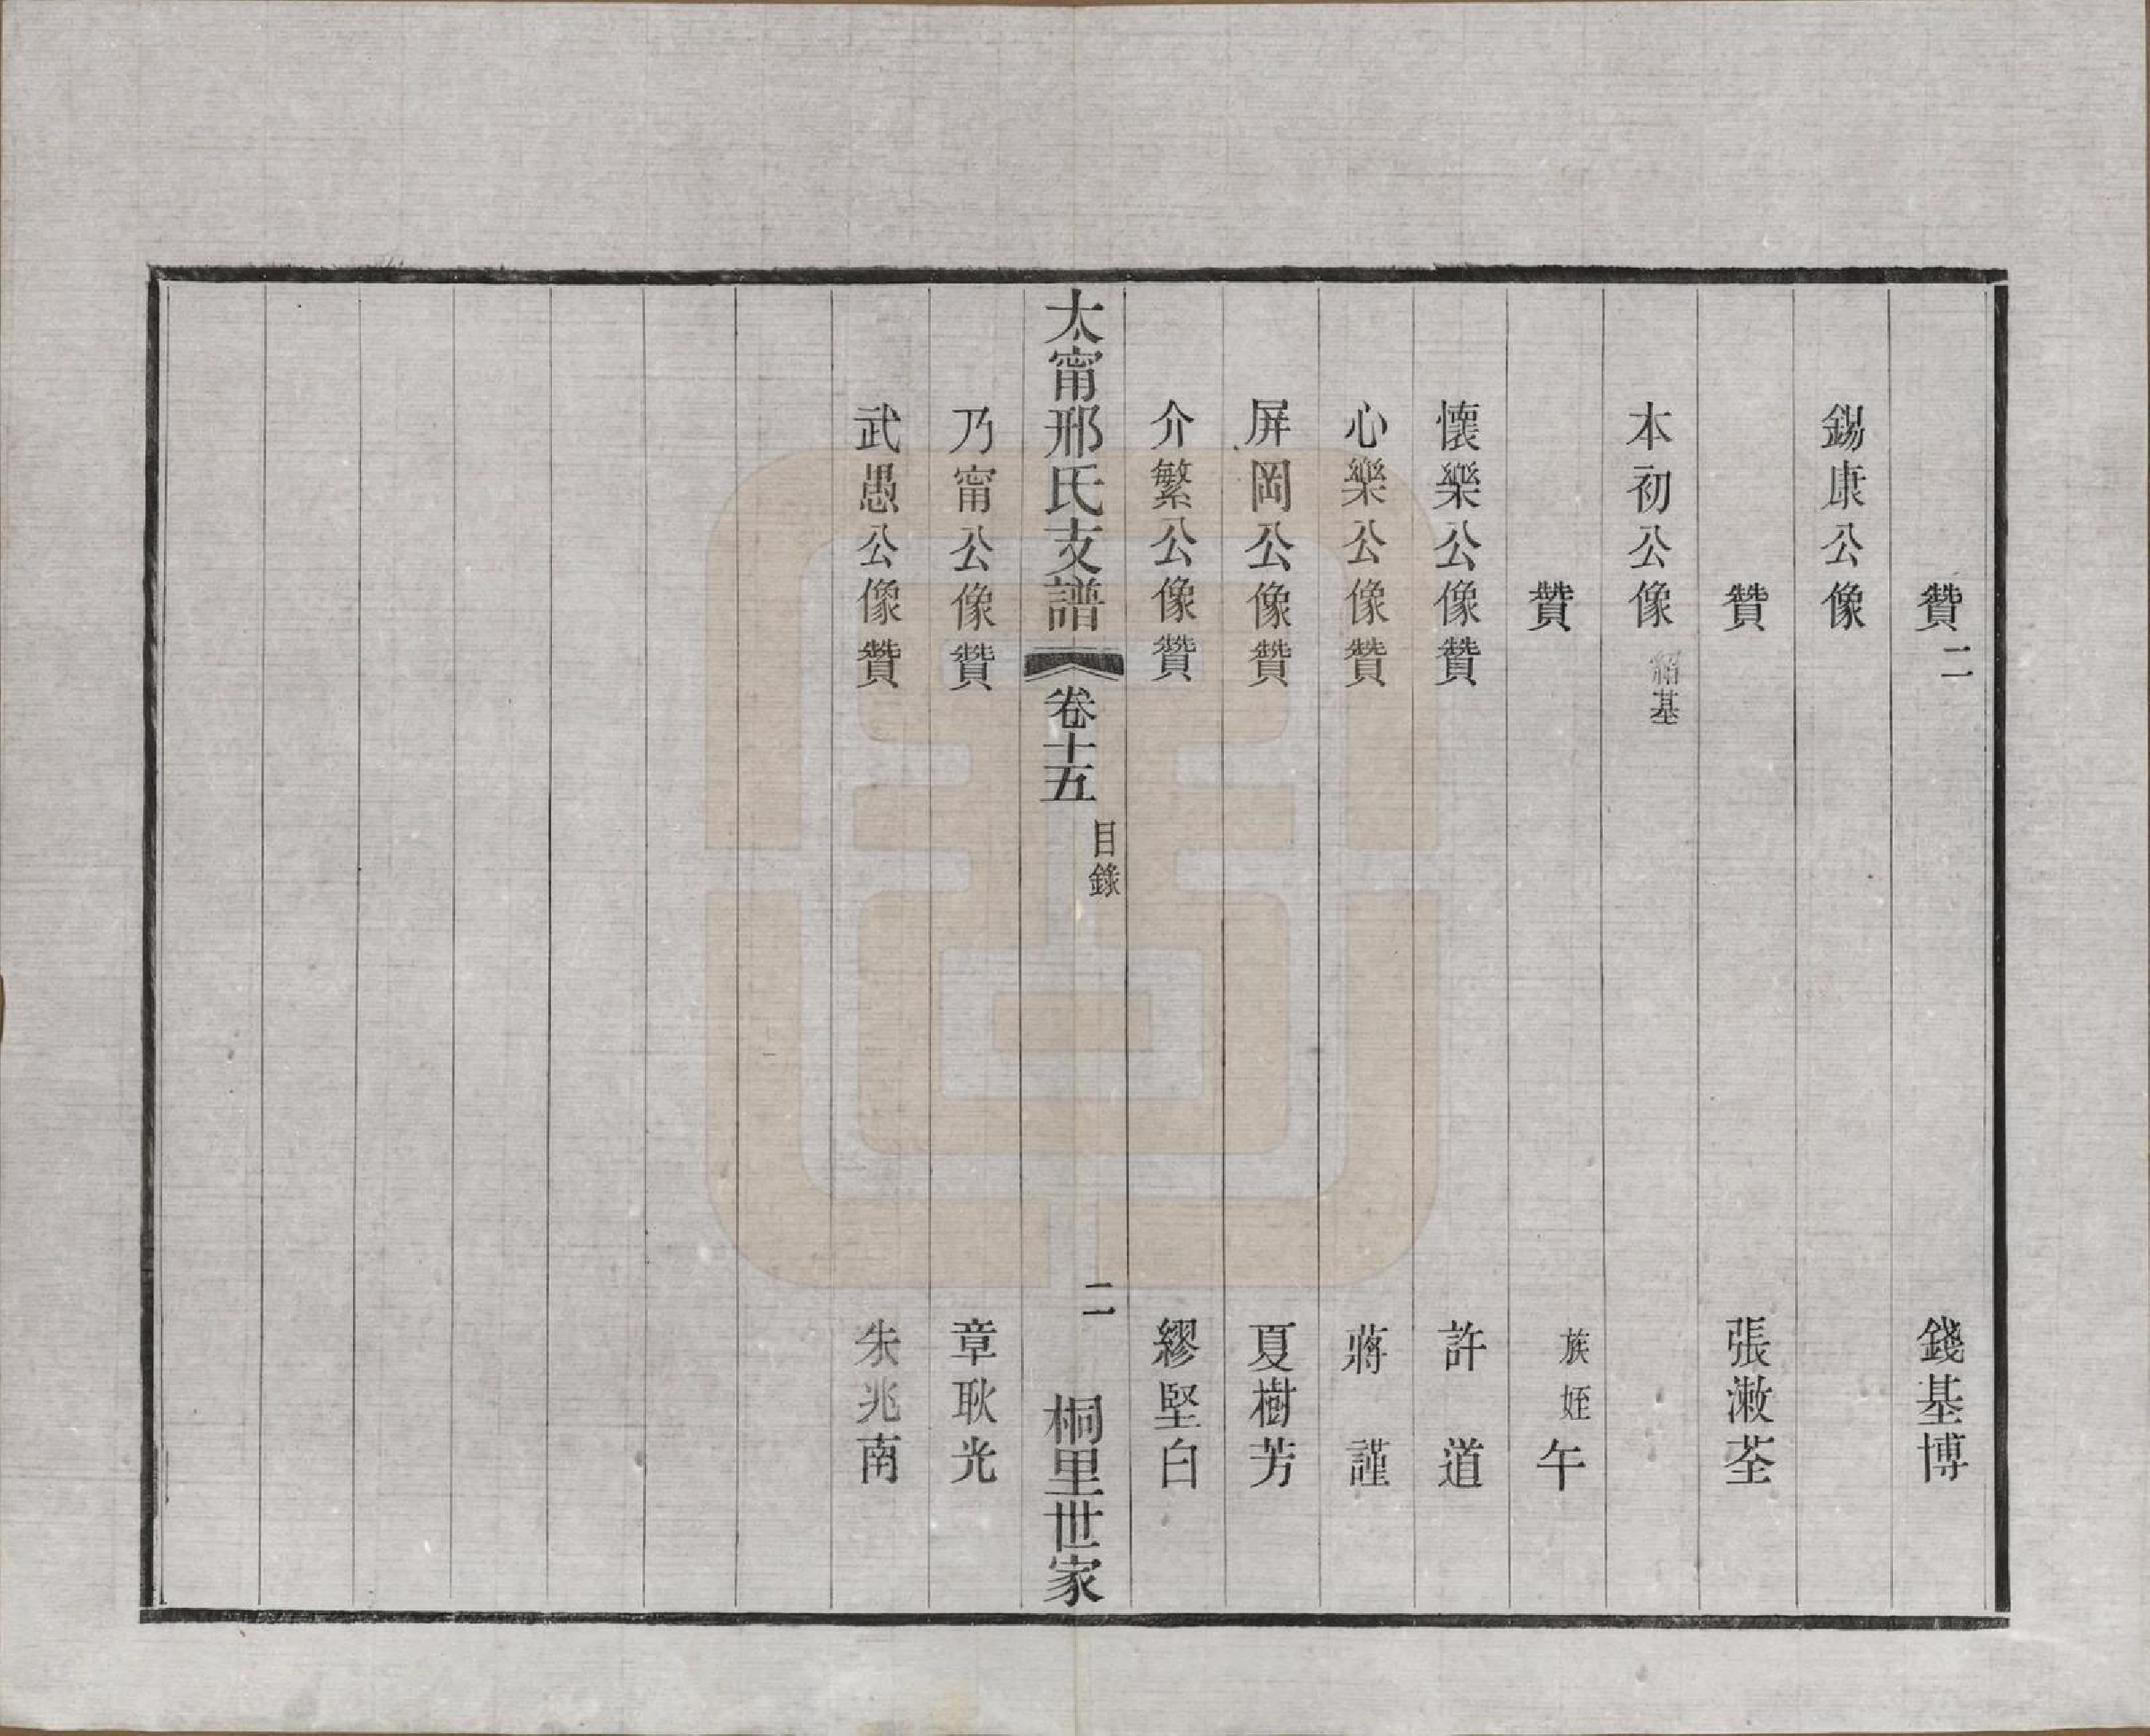 贊二 錢基博
錫康公像
贊 張漱荃
本初公像 紹基
贊 族姪午
懷樂公像贊 許道
心樂公像贊 蔣謹
屏岡公像贊 夏樹芳
介繁公像贊 繆堅白
太甯邢氏支譜 卷十五 目錄 二 桐里世家
乃甯公像贊 章耿光
武愚公像贊 朱兆南